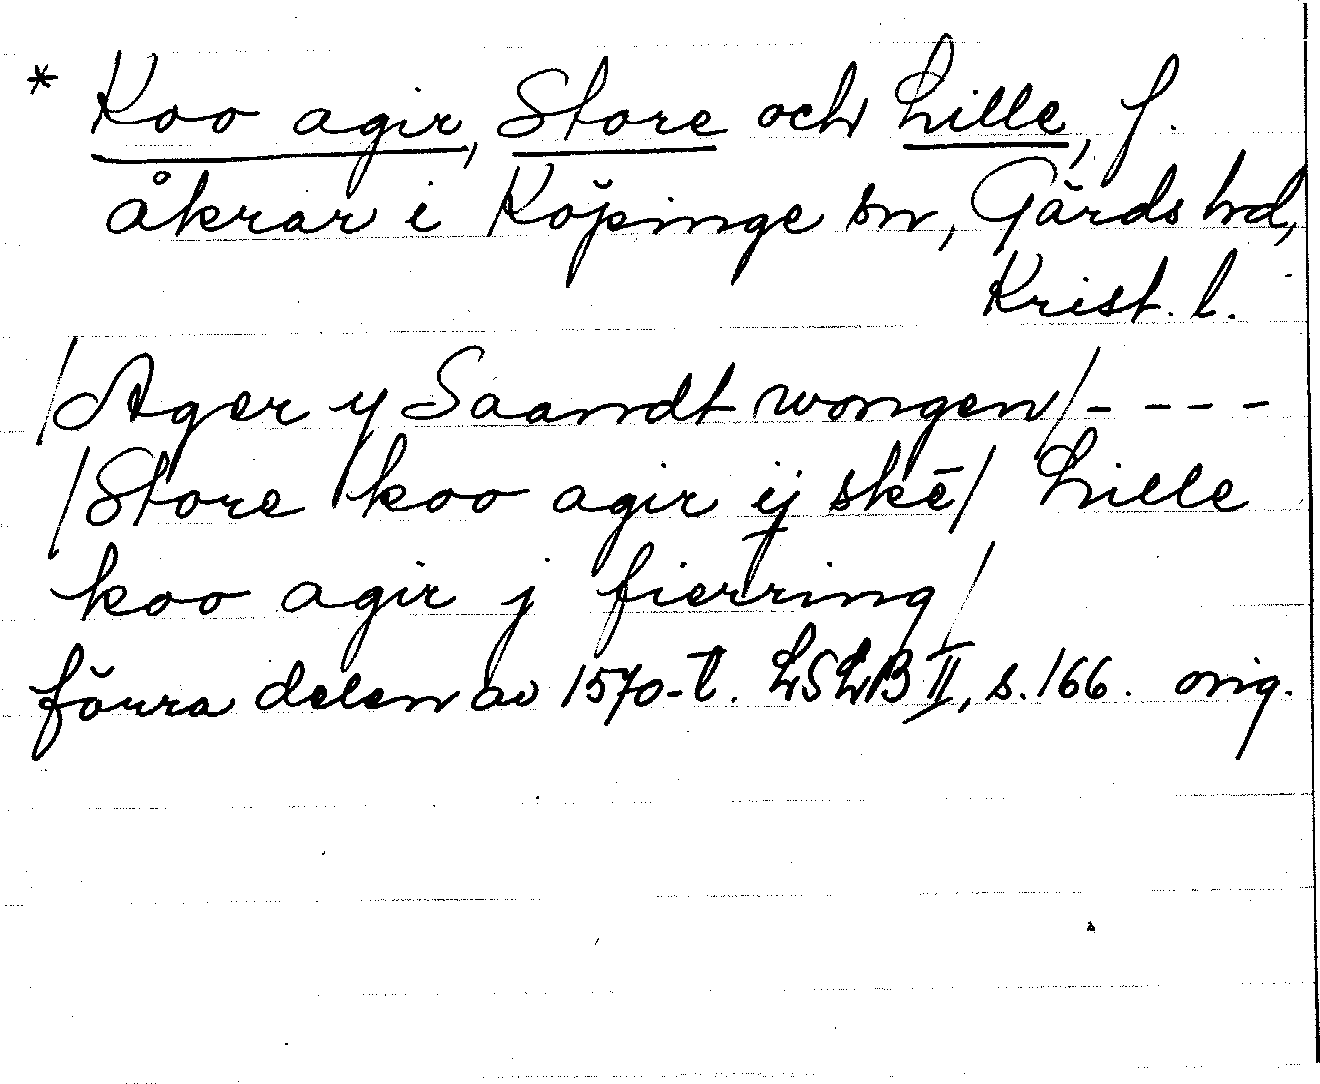 * Koo agir, Store och Lille, f.
åkrar i Köpinge sn, Gärds hd,
Krist. l.
/Ager y Saandt wongen/----
/Store koo agir ij skē/ Lille
koo agir j fierring/
förra delen av 1570-t. LSLB II, s. 166. orig.